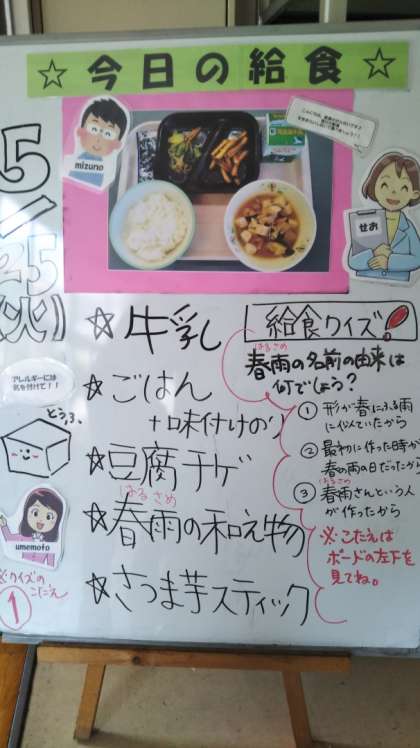 ☆今日の給食☆
mizuno
せお
5/25(火)
アレルギーには
気を付けて!!
とうふ
umemoto
※クイズの
こたえ
①
☆牛乳
☆ごはん
+味付けのり
☆豆腐チゲ
はるさめ
☆春雨の和え物
☆さつま芋スティック
給食クイズ!
はるさめ
春雨の名前の由来は
何でしょう?
① 形が春にふる雨
に似ていたから
② 最初に作った時が
春の雨の日だったから
はるさめ
③ 春雨さんという人
が作ったから
※こたえは
ボードの左下を
見てね。